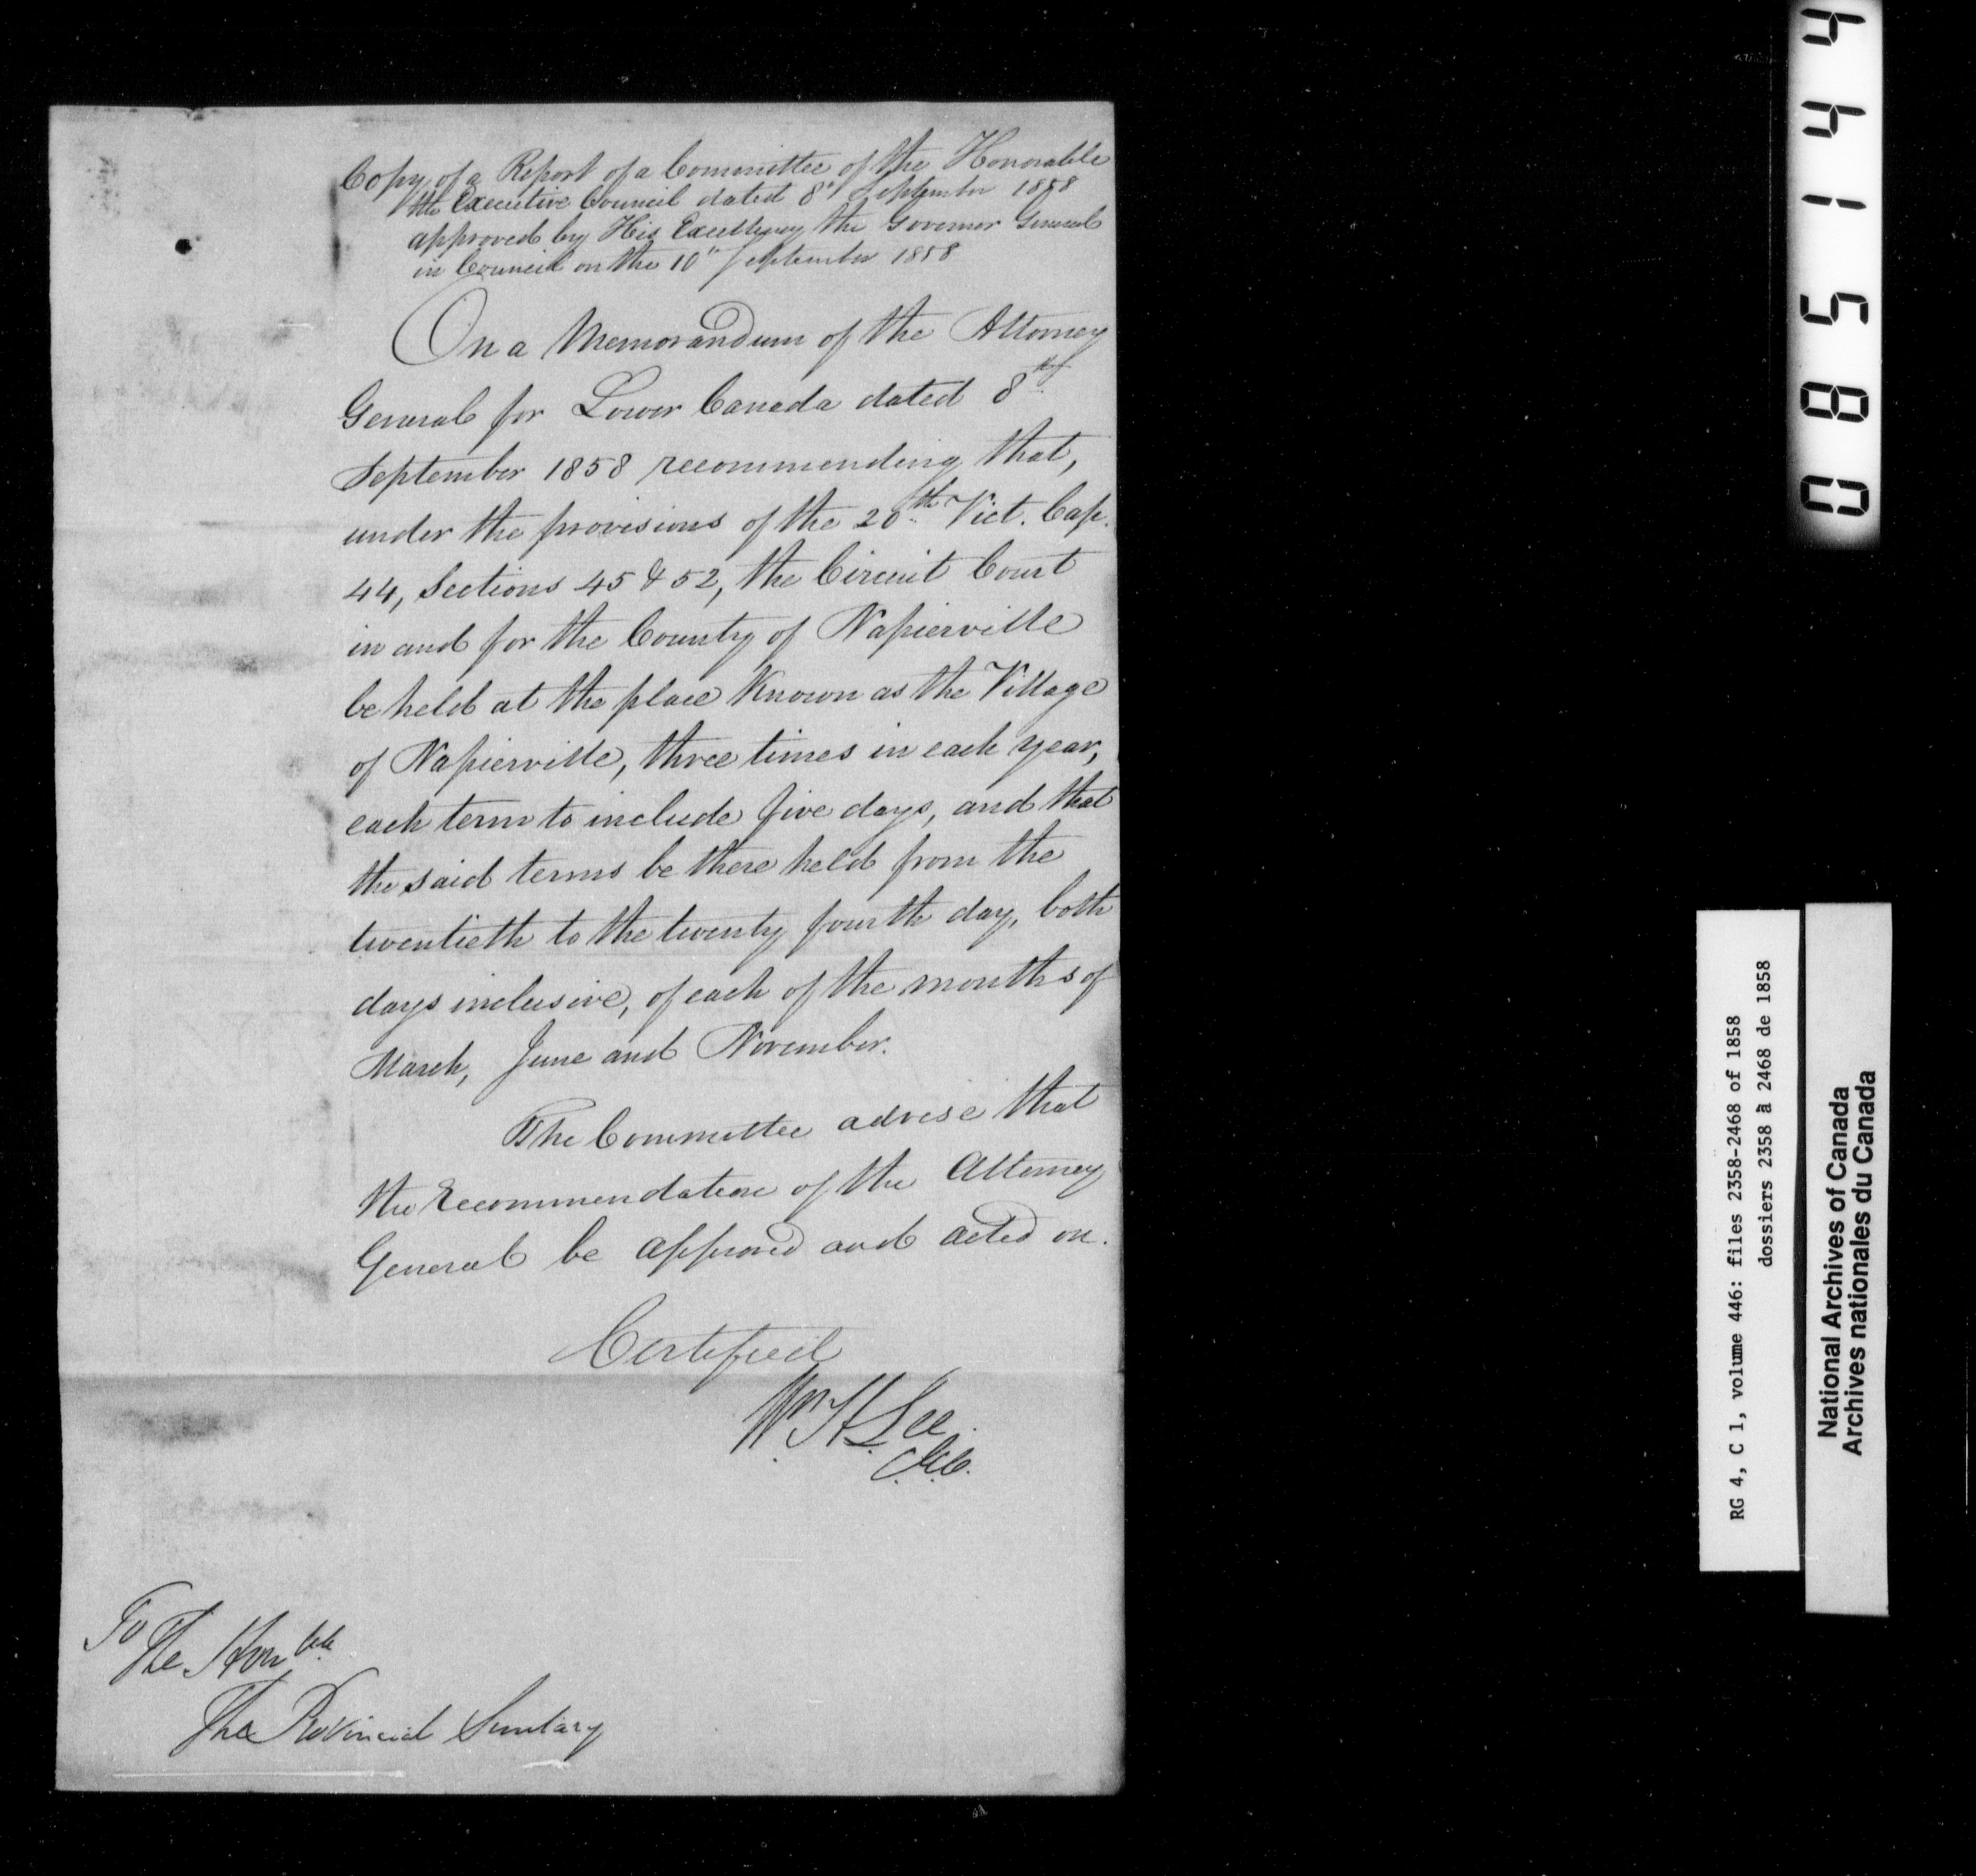 Copy of a Report of a Committee of the Honorable
the Executive Council dated 8th September 1858
approved by His Excellency the Governor General
in Council on the 10th September 1858
On a Memorandum of the Attorney
General for Lower Canada dated 8th
September 1858 recommending that,
under the provisions of the 20th Vict. Cap.
44, Sections 45 & 52, the Circuit Court
in and for the County of Napierville
be held at the place known as the Village
of Napierville, three times in each year,
each term to include five days, and that
the said terms be there held from the
twentieth to the twenty fourth day, both
days inclusive, of each of the months of
March, June and November.
The Committee advise that
the recommendation of the Attorney
General be approved and acted on.
Certified
Wm H Lee
C.E.C.
To
The Honble
The Provincial Secretary
085144
RG 4, C 1, volume 446: files 2358-2468 of 1858
dossiers 2358 à 2468 de 1858
National Archives of Canada
Archives nationales du Canada